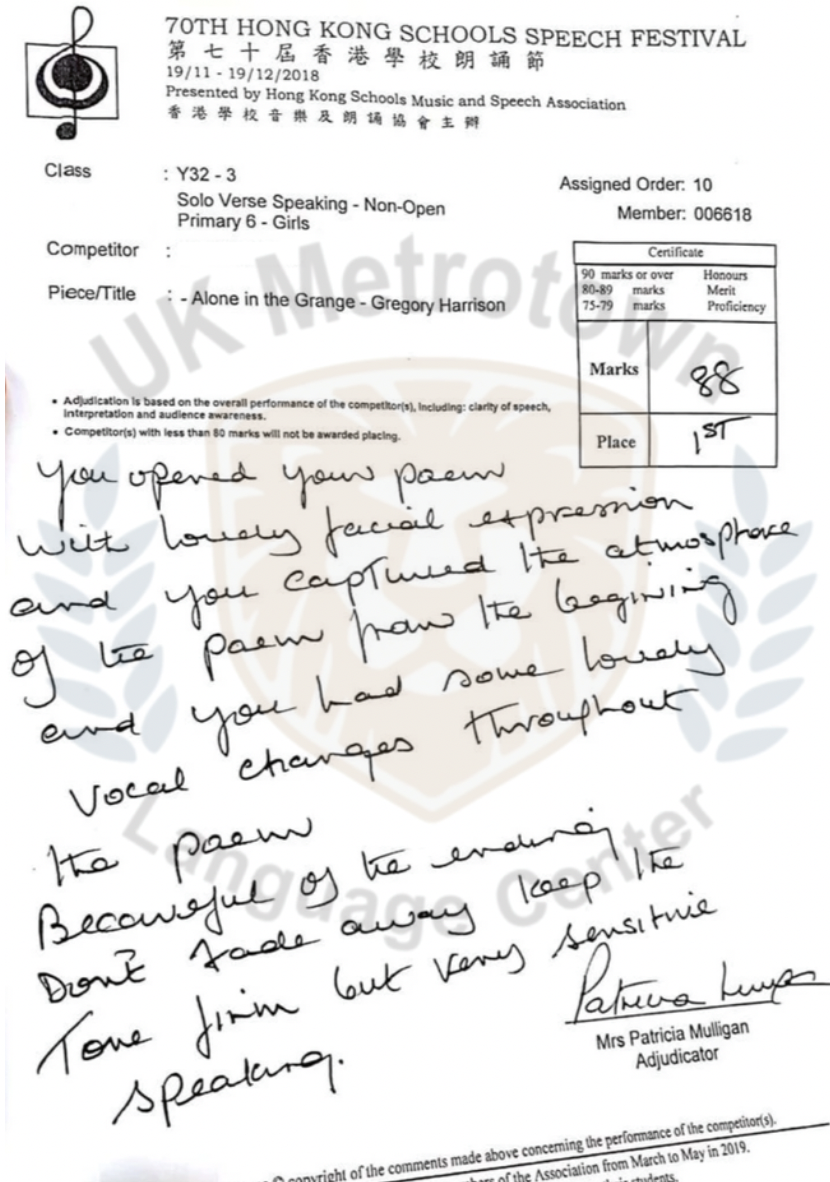 70TH HONG KONG SCHOOLS SPEECH FESTIVAL
第七十屆香港學校朗誦節
19/11 - 19/12/2018
Presented by Hong Kong Schools Music and Speech Association
香港學校音樂及朗誦協會主辦
Class : Y32 - 3
Assigned Order: 10
Solo Verse Speaking - Non-Open
Member: 006618
Primary 6 - Girls
Competitor :
Piece/Title : - Alone in the Grange - Gregory Harrison
Certificate
90 marks or over Honours
80-89 marks Merit
75-79 marks Proficiency
Marks 88
Place 1ST
• Adjudication is based on the overall performance of the competitor(s), including: clarity of speech,
interpretation and audience awareness.
• Competitor(s) with less than 80 marks will not be awarded placing.
UK Metrotown
Language Center
You opened your poem
with lovely facial expression
and you captured the atmosphere
of the poem from the begining
and you had some lovely
vocal changes throughout
the poem
of the ending
Don't fade away keep the
Tone firm but very sensitive
speaking.
Patricia
Mrs Patricia Mulligan
Adjudicator
© copyright of the comments made above concerning the performance of the competitor(s).
of the Association from March to May in 2019.
students.